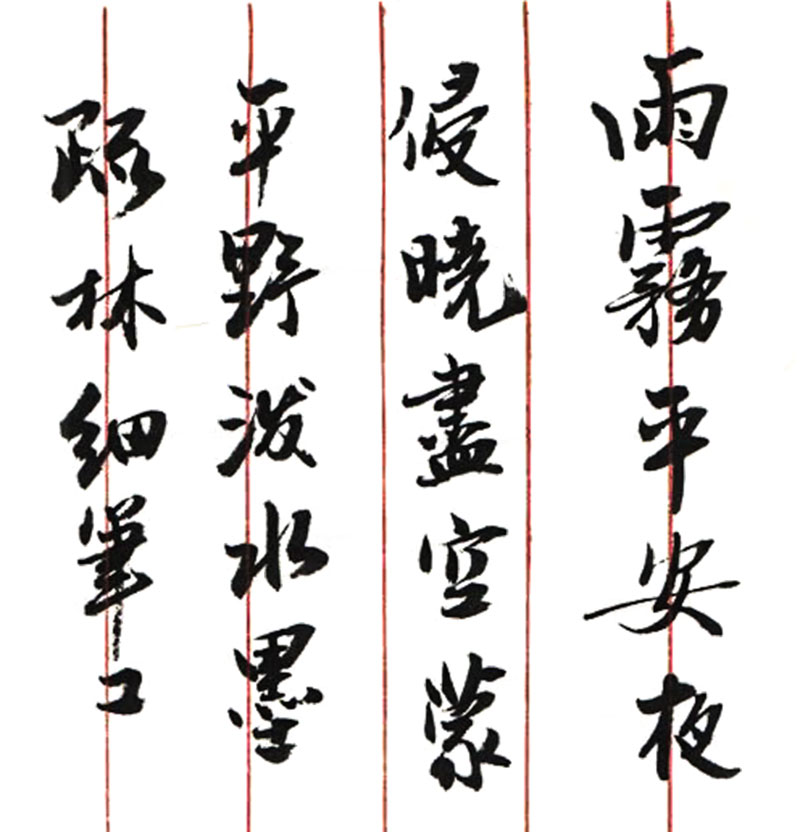 雨霧平安夜
侵曉盡空蒙
平野泼水墨
疏林細筆工